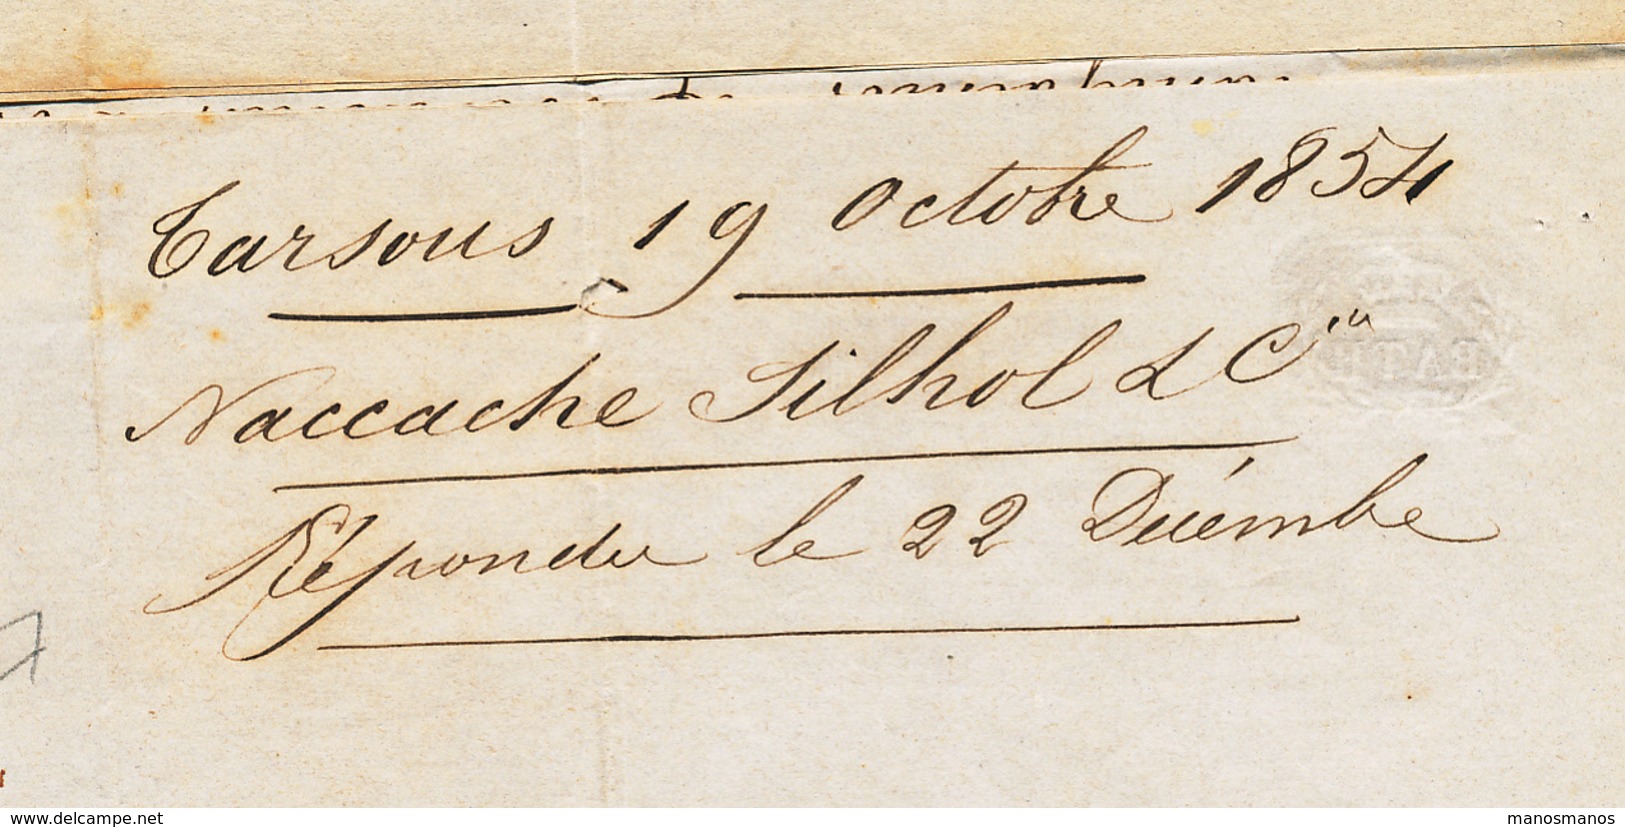 Tarsous 19 Octobre 1854
Naccache Silhol & Cie
Répondu le 22 Décembe
BATH
7
delcampe.net
manosmanos